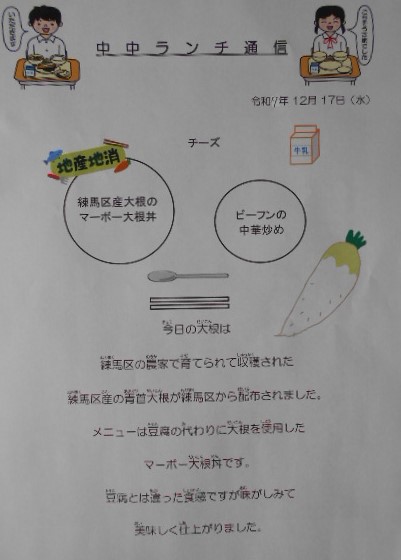 いただきます
ごちそうさまでした
中中ランチ通信
令和7年 12月 17日（水）
チーズ
牛乳
地産地消
練馬区産大根の
マーボー大根丼
ビーフンの
中華炒め
今日の大根は
練馬区の農家で育てられて収穫された
練馬区産の青首大根が練馬区から配布されました。
メニューは豆腐の代わりに大根を使用した
マーボー大根丼です。
豆腐とは違った食感ですが味がしみて
美味しく仕上がりました。